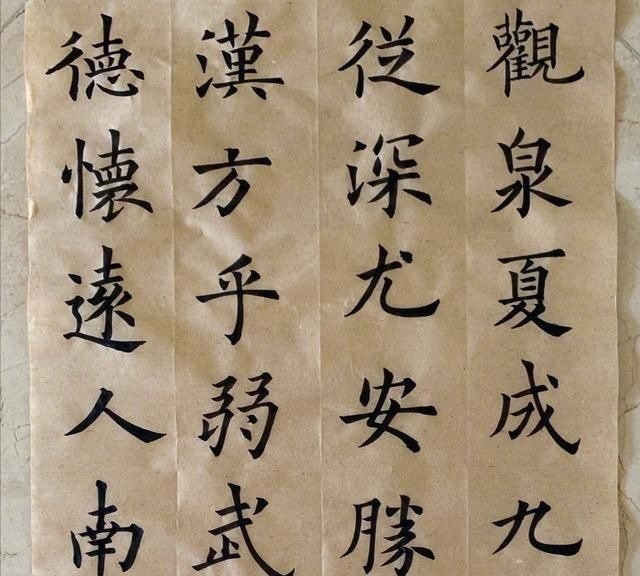 觀泉夏成九
従深尤安勝
漢方乎弱武
徳懷遠人南